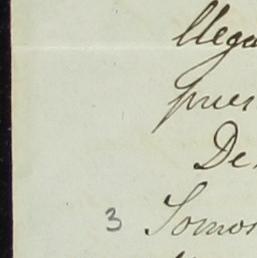 llega
pues
De
3 Somos